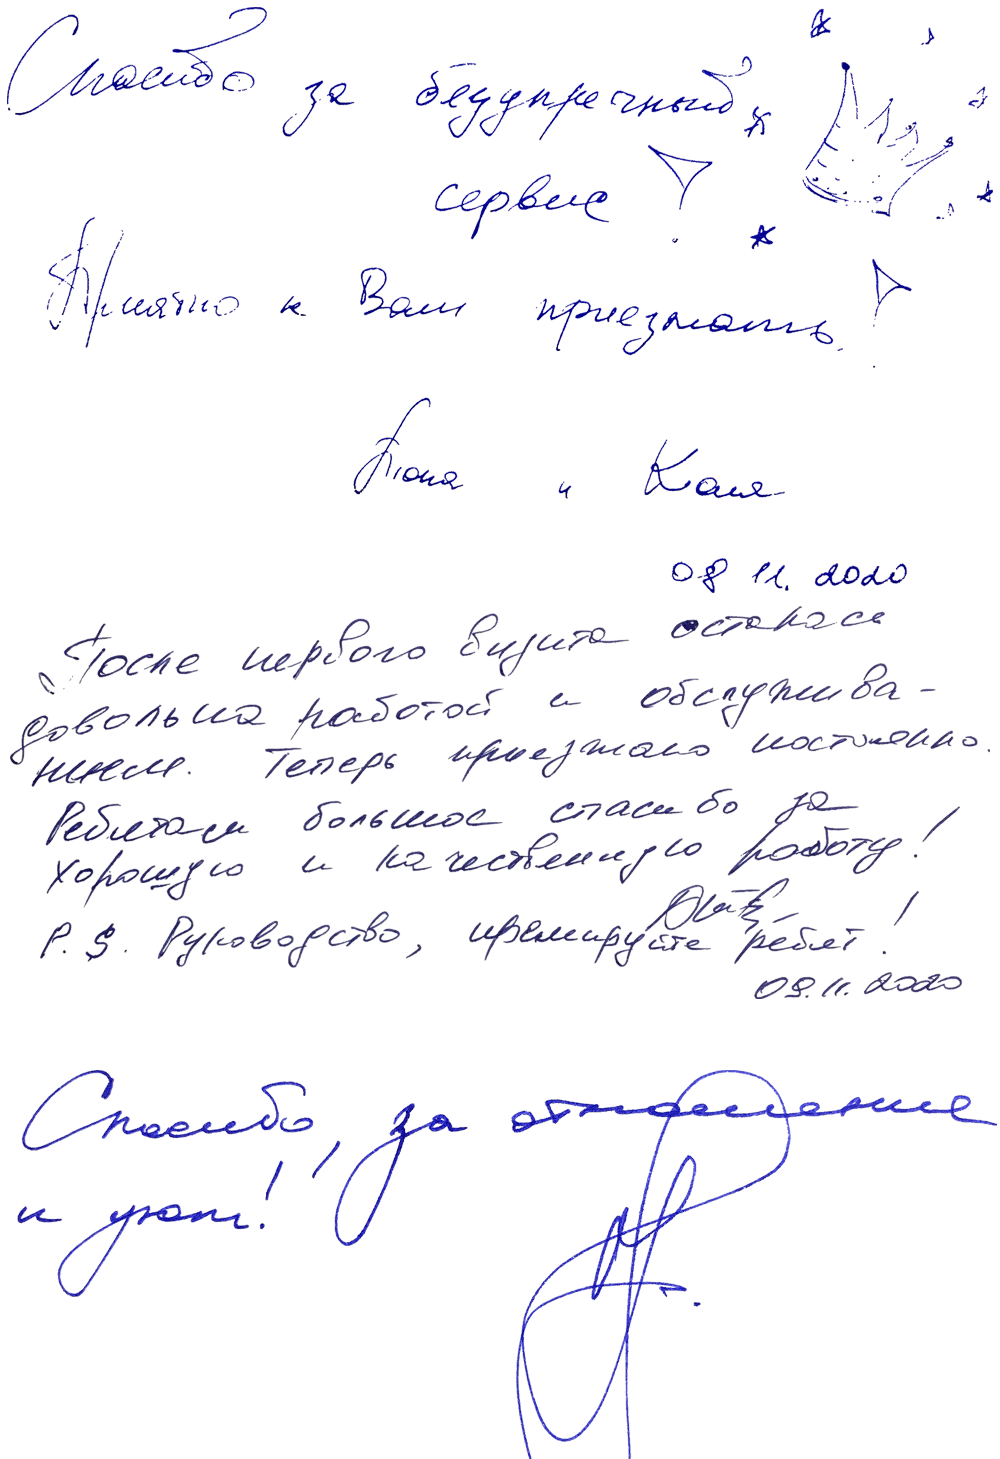 Спасибо за безупречный
сервис!
Приятно к Вам приезжать!
и Коля
08 11. 2020
После первого визита осталась
довольна работой и обслужива-
нием. Теперь приезжаю постоянно.
Ребятам большое спасибо за
хорошую и качественную работу!
P. S. Руководство, премируйте ребят!
09.11.2020
Спасибо, за отношение
и уют!